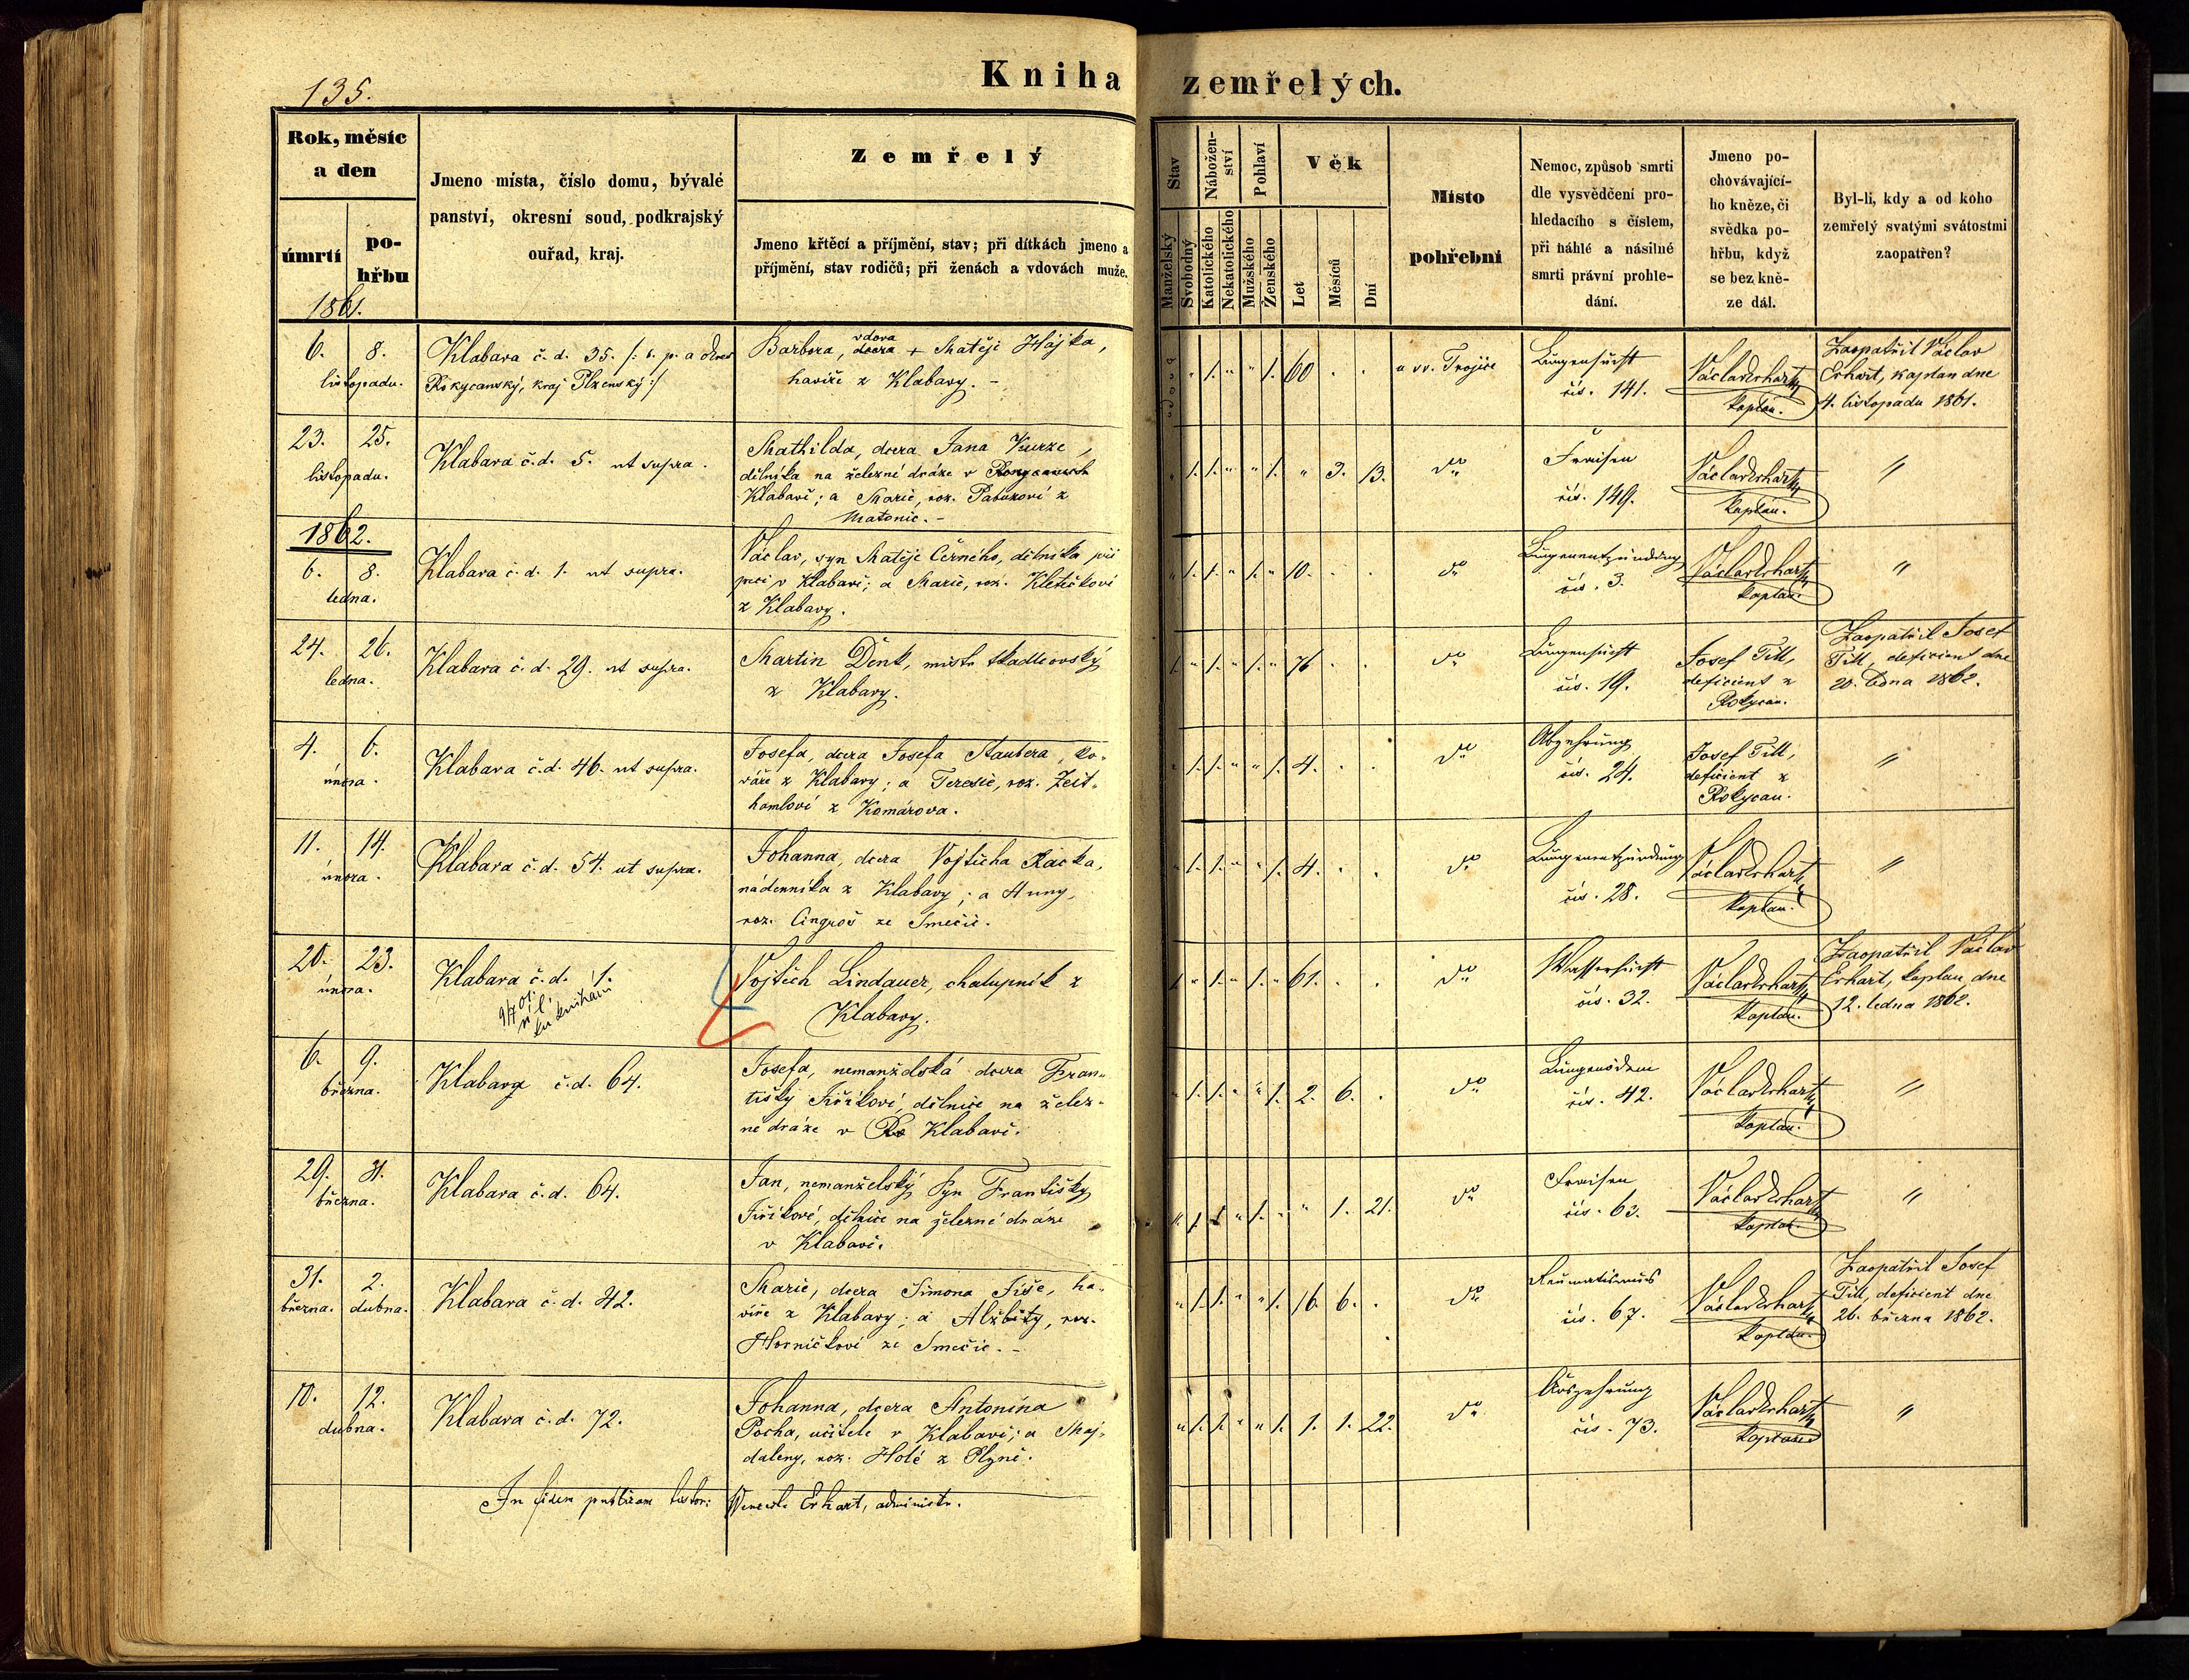 135.
Kniha zemřelých.
Rok, měsíc
a den
úmrtí
po-
hřbu
1861.
Jmeno místa, číslo domu, bývalé
panství, okresní soud, podkrajský
ouřad, kraj.
Zemřelý
Jmeno křtěcí a příjmění, stav; při dítkách jmeno a
příjmění, stav rodičů; při ženách a vdovách muže.
Stav
Manželský
Svobodný
Nábožen-
ství
Katolického
Nekatolického
Pohlaví
Mužského
Ženského
Věk
Let
Měsíců
Dní
Místo
pohřební
Nemoc, způsob smrti
dle vysvědčení pro-
hledacího s číslem,
při náhlé a násilné
smrti právní prohle-
dání.
Jmeno po-
chovávající-
ho kněze, či
svědka po-
hřbu, když
se bez kně-
ze dál.
Byl-li, kdy a od koho
zemřelý svatými svátostmi
zaopatřen?
6. 8.
listopadu.
Klabava č. d. 35. /: s. p. a okres
Rokycanský, kraj Plzenský :/
vdova
Barbora, dcera + Matěji Hájka,
havíře z Klabavy. -
" 1. " " 1. 60 . .
u sv. Trojice
Lungensucht
čís. 141.
Václav Erhart,
kaplan.
Zaopatřil Václav
Erhart, kaplan dne
4. listopadu 1861.
23. 25.
listopadu.
Klabava č. d. 5. ut supra.
Mathilda, dcera Jana Kurze,
dělníka na železné dráze v Rokycanech
Klabavě; a Marie, roz.
Matonic. -
" 1. 1. " " 1. " 3. 13.
do
Fraisen
čís. 149.
Václav Erhart,
kaplan.
"
1862.
6. 8.
ledna.
Klabava č. d. 1. ut supra.
Václav, syn Matěje Černého, dělníka při
peci v Klabavě; a Marie, roz. Kletečkové
z Klabavy.
" 1. 1. " 1. " 10. . .
do
Lungenentzündung
čís. 3.
Václav Erhart,
kaplan.
"
24. 26.
ledna.
Klabava č. d. 29. ut supra.
Martin Denk, mistr tkadlcovský
z Klabavy.
1. " 1. " 1. " 76. . .
do
Lungensucht
čís. 19.
Josef Till,
deficient z
Rokycan.
Zaopatřil Josef
Till, deficient dne
20. ledna 1862.
4. 6.
února.
Klabava č. d. 46. ut supra.
Josefa, dcera Josefa Staubera, ko-
váře z Klabavy; a Teresie, roz. Zeit-
hamlové z Komárova.
" 1. 1. " " 1. 4. . .
do
Abzehrung
čís. 24.
Josef Till,
deficient z
Rokycan.
"
11. 14.
února.
Klabava č. d. 54. ut supra.
Johanna, dcera Vojtěcha Racka,
nádenníka z Klabavy; a Anny,
roz. Cingroš ze Smečic.
" 1. 1. " " 1. 4. . .
do
Lungenentzündung
čís. 28.
Václav Erhart,
kaplan.
"
20. 23.
února.
Klabava č. d. 1.
Vojtěch Lindauer, chalupník z
Klabavy.
1. " 1. " 1. " 61. . .
do
Wassersucht
čís. 32.
Václav Erhart,
kaplan.
Zaopatřil Václav
Erhart, kaplan, dne
12. ledna 1862.
6. 9.
března.
Klabava č. d. 64.
Josefa, nemanželská dcera Fran-
tišky Jiříkové, dělnice na želez-
né dráze v Ro Klabavě.
" 1. 1. " " 1. 2. 6. .
do
Lungenödem
čís. 42.
Václav Erhart,
kaplan.
"
29. 31.
března.
Klabava č. d. 64.
Jan, nemanželský syn Františky
Jiříkové, dělnice na železné dráze
v Klabavě.
" 1. 1. " 1. " " 1. 21.
do
Fraisen
čís. 63.
Václav Erhart,
kaplan.
"
31. 2.
března. dubna.
Klabava č. d. 42.
Marie, dcera Šimona Fiše, ha-
víře z Klabavy; a Alžběty, roz.
Horničkové ze Smečic. -
" 1. 1. " " 1. 16. 6. .
do
Reumatismus
čís. 67.
Václav Erhart,
kaplan.
Zaopatřil Josef
Till, deficient dne
26. března 1862.
10. 12.
dubna.
Klabava č. d. 72.
Johanna, dcera Antonína
Pocha, učitele v Klabavě; a Maj-
daleny, roz. Holé z Plzně.
" 1. 1. " " 1. 1. 1. 22.
do
Auszehrung
čís. 73.
Václav Erhart,
kaplan
"
In fidem publicam testor: Wenceslaus Erhart, administr.